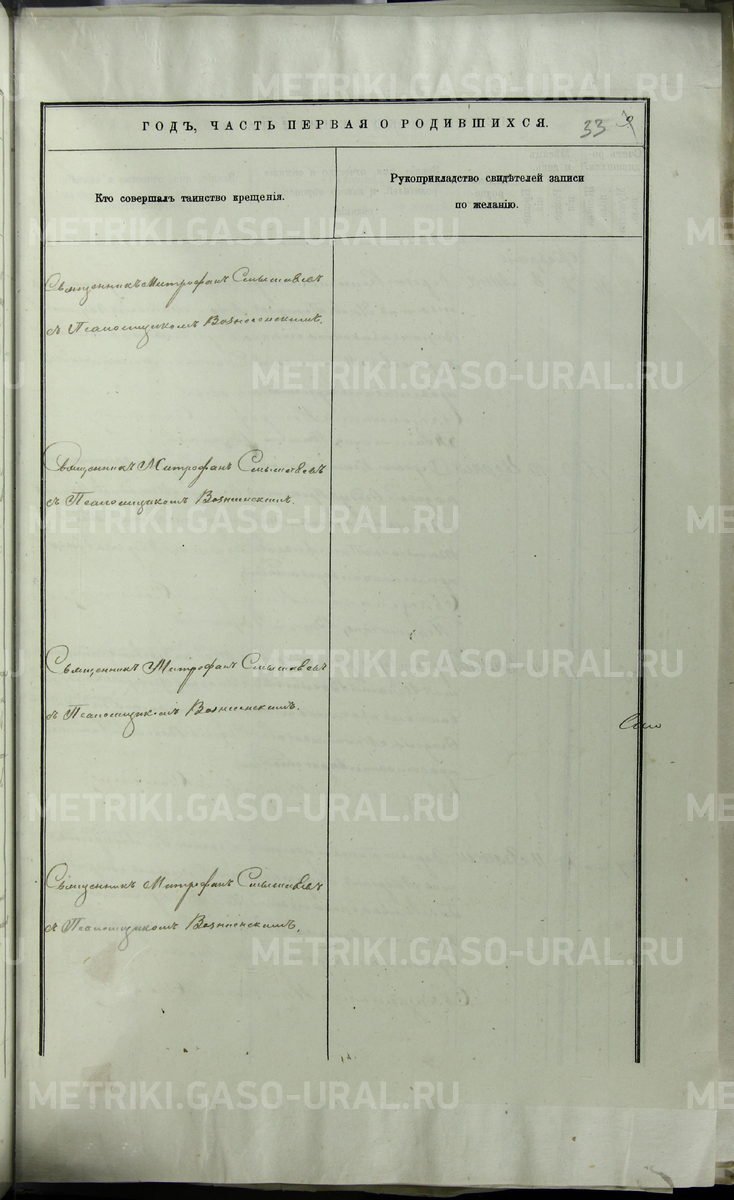 METRIKI.GASO-URAL.RU
ГОДЪ, ЧАСТЬ ПЕРВАЯ О РОДИВШИХСЯ.
33
Кто совершалъ таинство крещенія.
Рукоприкладство свидѣтелей записи
по желанію.
Священникъ Митрофанъ
съ Псаломщикомъ Вознесенскимъ.
Священникъ Митрофанъ
съ Псаломщикомъ Вознесенскимъ.
Священникъ Митрофанъ
съ Псаломщикомъ Вознесенскимъ.
Священникъ Митрофанъ
съ Псаломщикомъ Вознесенскимъ.